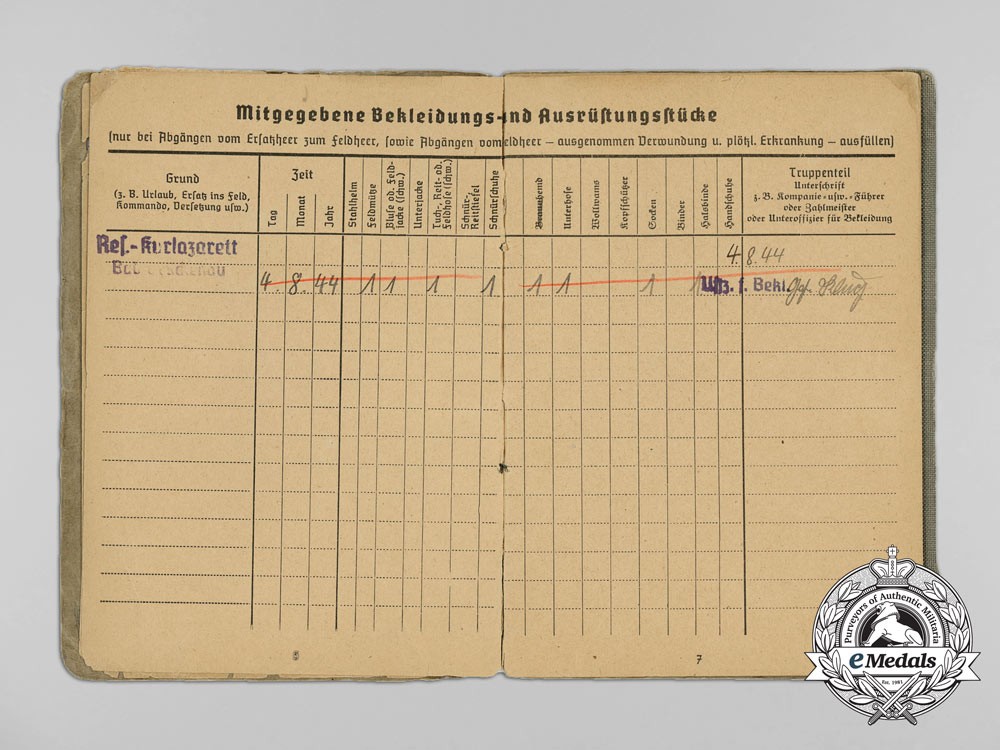 Mitgegebene Bekleidungs- und Ausrüstungsstücke
(nur bei Abgängen vom Ersatzheer zum Feldheer, sowie Abgängen vom eldheer – ausgenommen Verwundung u. plötzl. Erkrankung – ausfüllen)
Grund
(z. B. Urlaub, Ersatz ins Feld,
Kommando, Versetzung usw.)
Zeit
Tag
Monat
Jahr
Stahlhelm
Feldmütze
Bluse od. Feld-
jacke (schw.)
Unterjacke
Tuch-, Reit- od.
Feldhose (schw.)
Schnür-,
Reitstiefel
Schnürschuhe
Unterhose
Wollwams
Kopfschützer
Socken
Binder
Halsbinde
Handschuhe
Truppenteil
Unterschrift
z. B. Kompanie- usw. -Führer
oder Zahlmeister
oder Unteroffizier für Bekleidung
Res.-Kurlazarett
Bad
4.8.44
4. 8. 44 1 1 1 1 1 1 1 1 Uffz. f. Bekl.
7
Purveyors of Authentic Militaria
eMedals
Est. 1981